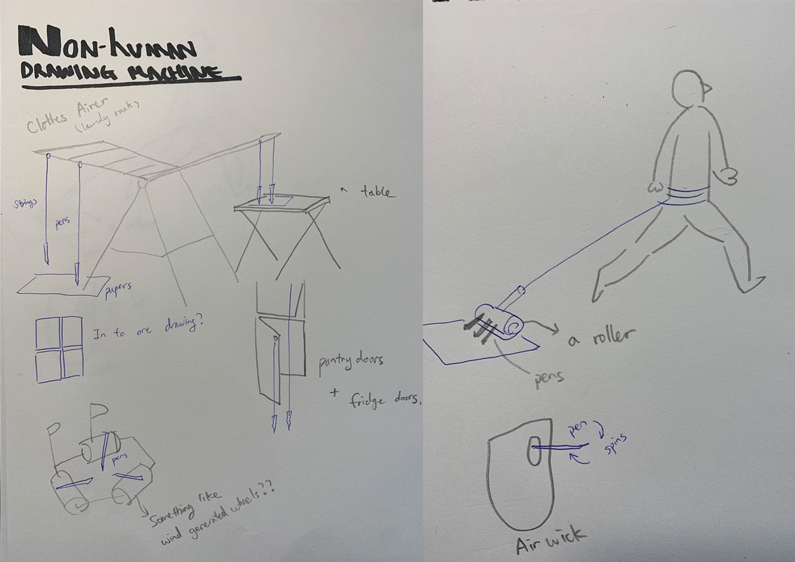 Non-human
DRAWING MACHINE
Clothes Airer
(laundy rack)
strings
pens
papers
a table
In to one drawing?
pantry doors
+
fridge doors.
pens
Something like
wind generated wheels??
a roller
pens
pen
spins
Air wick